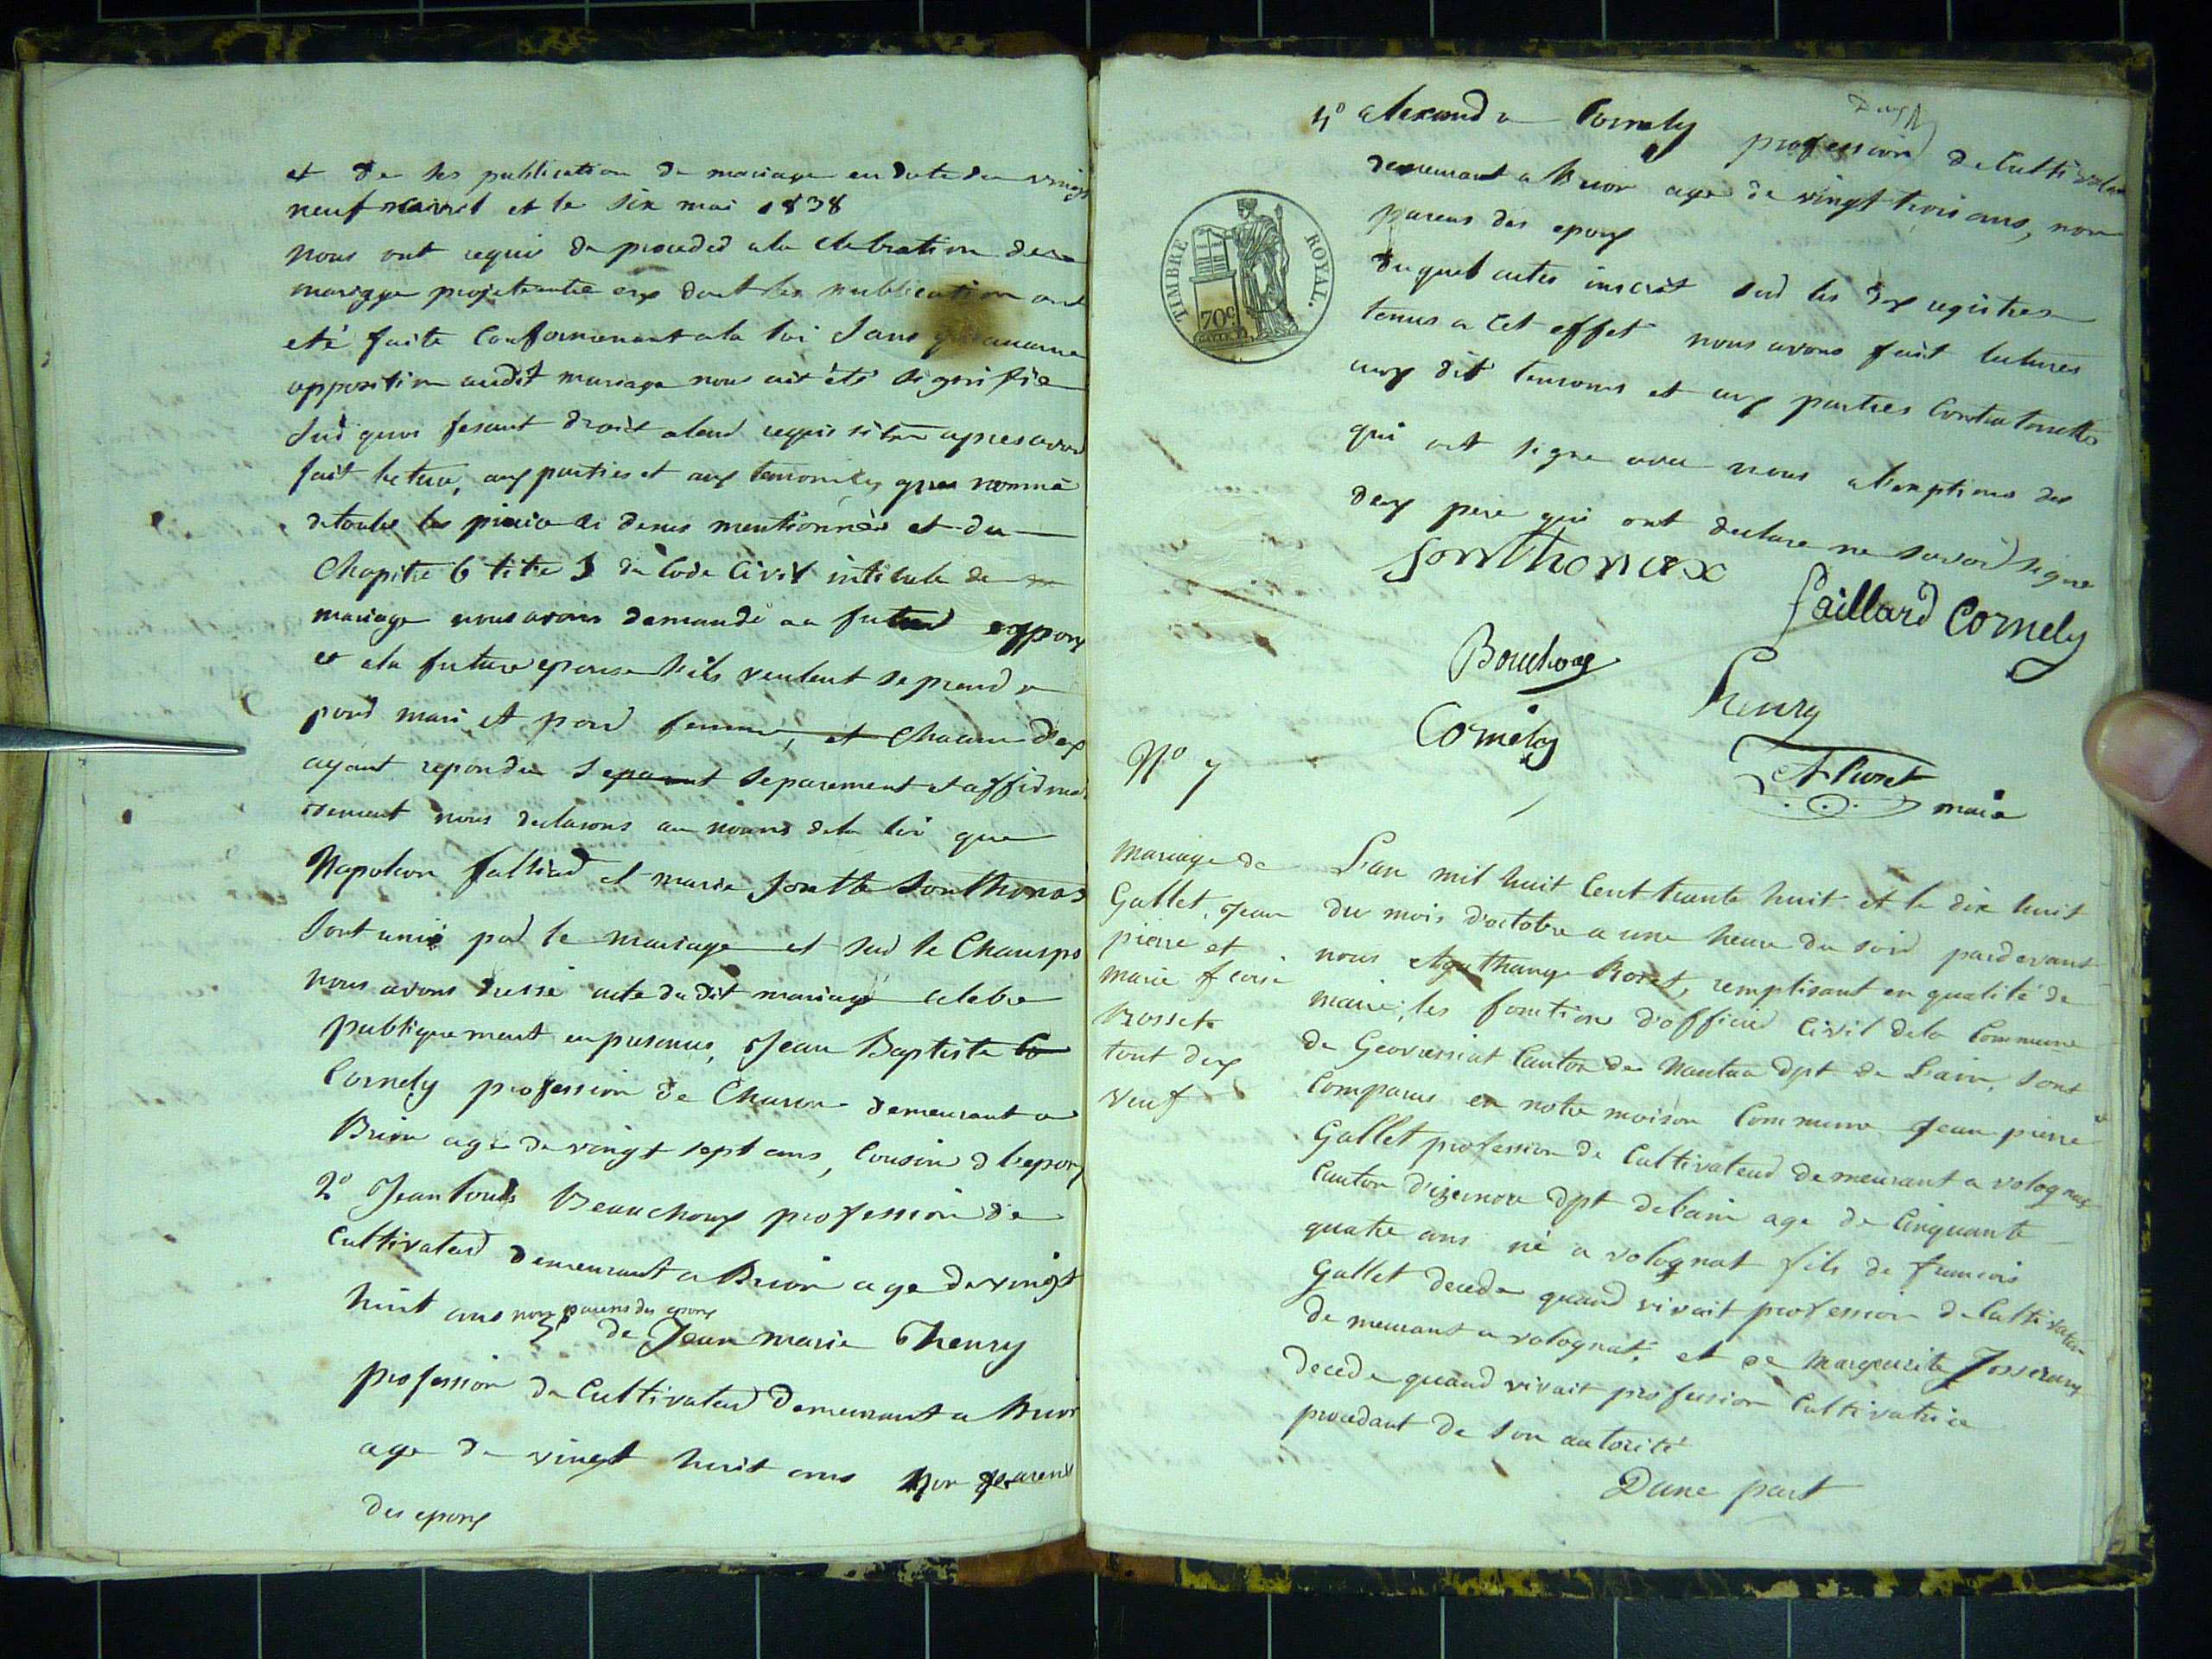 et de ses publication de mariage en date du vingt
neuf avril et le six mai 1838
nous ont requis de proceded a la clebration de ce
mariage projete entre eux dont les publication ont
eté faite Conformement a la loi sans qu'aucune
opposition audit mariage nous ait été signifié
Sur quoi fesant droit a leur requisition apres avoir
fait lecture, aux parties et aux temoins
de toutes les piéce ci desus mentionnés et du
Chapitre 6 titre 5 du Code Civil intitule de
mariage nous avons demandé au futur eppoux
et a la future epouse s'ils veulent se prendre
pour mari et pour femme, et Chacun d'eux
ayant repondu separement et affirmati
vement nous declarons au noms de la loi que
Napoleon falliard et marie Sonthonas
Sont unie par le mariage et sur le Champs
nous avons dressé acte du dit mariage celebre
publiquement en presences, Jean Baptiste Co
Cornely profession de Charon demeurant a
Brion age de vingt sept ans, Cousin d l'epoux
2° Jean louis Beauchoux profession de
Cultivateur demeurant a Brion age de vingt
huit ans non parens des epoux
3° de Jean marie Thenry
profession de Cultivateur demeurant a Brion
age de vingt huit ans non parens
des epoux
4° alexandre Cornely profession de Cultivateur
demeurant a Brion age de vingt trois ans, non
parens des epoux
TIMBRE ROYAL.
70c
duquel actes inscrit sur les dx registres
tenus a Cet effet nous avons fait lectures
aux dit temoins et aux parties Contractantes
qui ont signe avec nous a l'exptions des
deux pere qui ont declare ne savoir signe
Sonthonax
faillard Cornely
Bouchoux
henry
Cornely
A Poret
maire
N° 7
mariage de
Gallet, Jean
pierre et
marie
Rosset
tout deux
veuf
L'an mil huit Cent trente huit et le dix huit
du mois d'octobre a une heure du soir pardevant
nous Agathange Poret, remplisant en qualité de
maire, les fonction d'officier Civil de la Commune
de Geovressiat Canton de Nantua dpt de L'ain, Sont
Comparus en notre maison Commune Jean pierre
Gallet profession de Cultivateur demeurant a volognat
Canton d'izernore dpt de l'ain age de Cinquante
quatre ans né a volognat fils de francois
Gallet decede quand vivait profession de Cultivateur
demeurant a volognat, et de Marguerite Josserand
decede quand vivait profession Cultivatrice
procedant de son autorité
Dune part